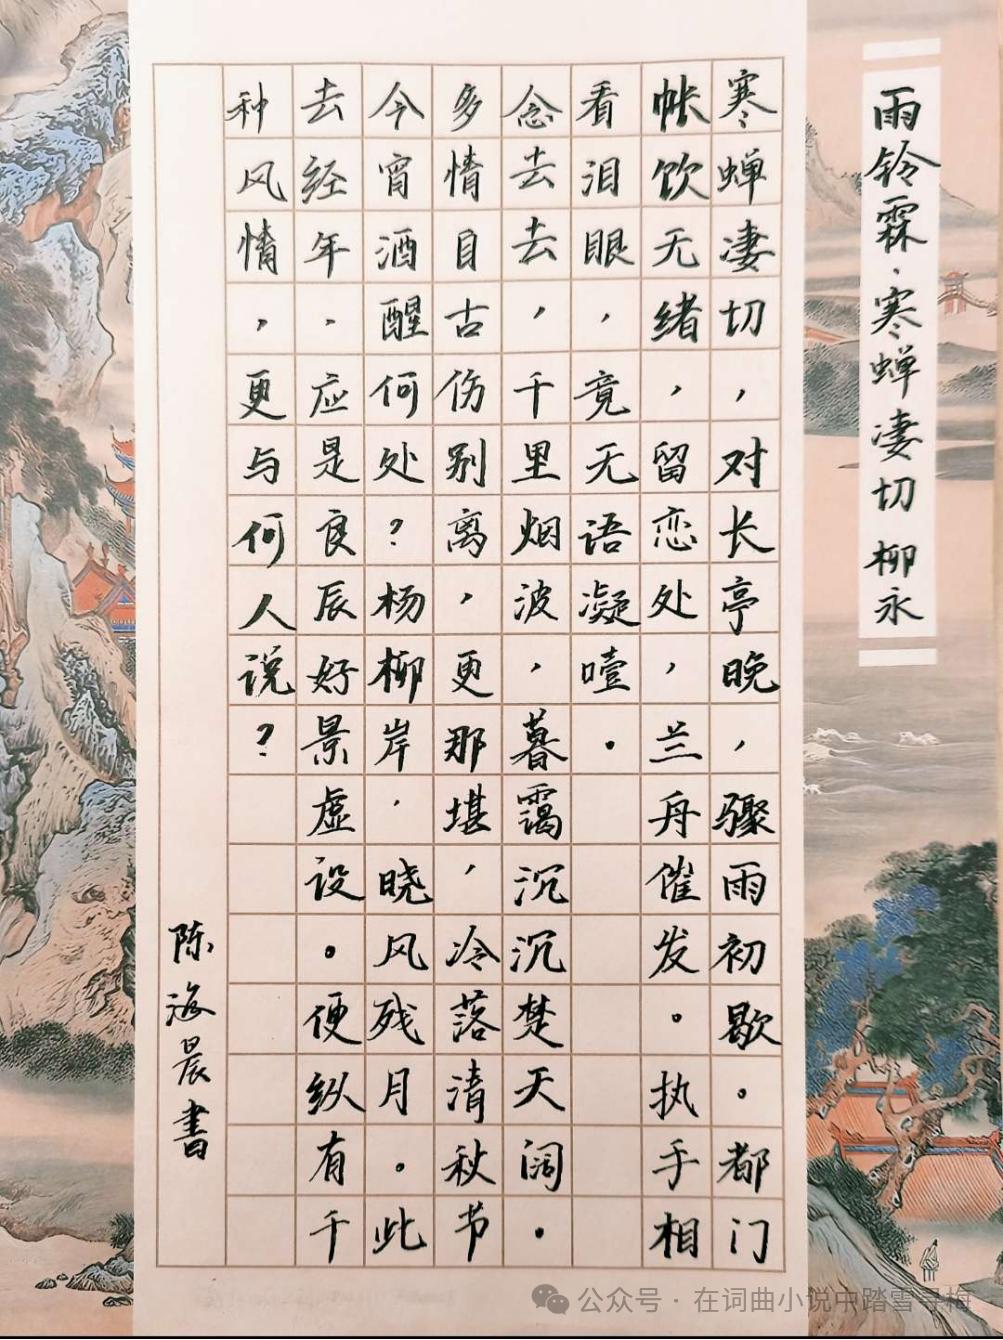 雨铃霖·寒蝉凄切 柳永
寒蝉凄切，对长亭晚，骤雨初歇。都门
帐饮无绪，留恋处，兰舟催发。执手相
看泪眼，竟无语凝噎。
念去去，千里烟波，暮霭沉沉楚天阔。
多情自古伤别离，更那堪，冷落清秋节
今宵酒醒何处？杨柳岸，晓风残月。此
去经年，应是良辰好景虚设。便纵有千
种风情，更与何人说？
陈海晨書
公众号·在词曲小说中踏雪寻梅